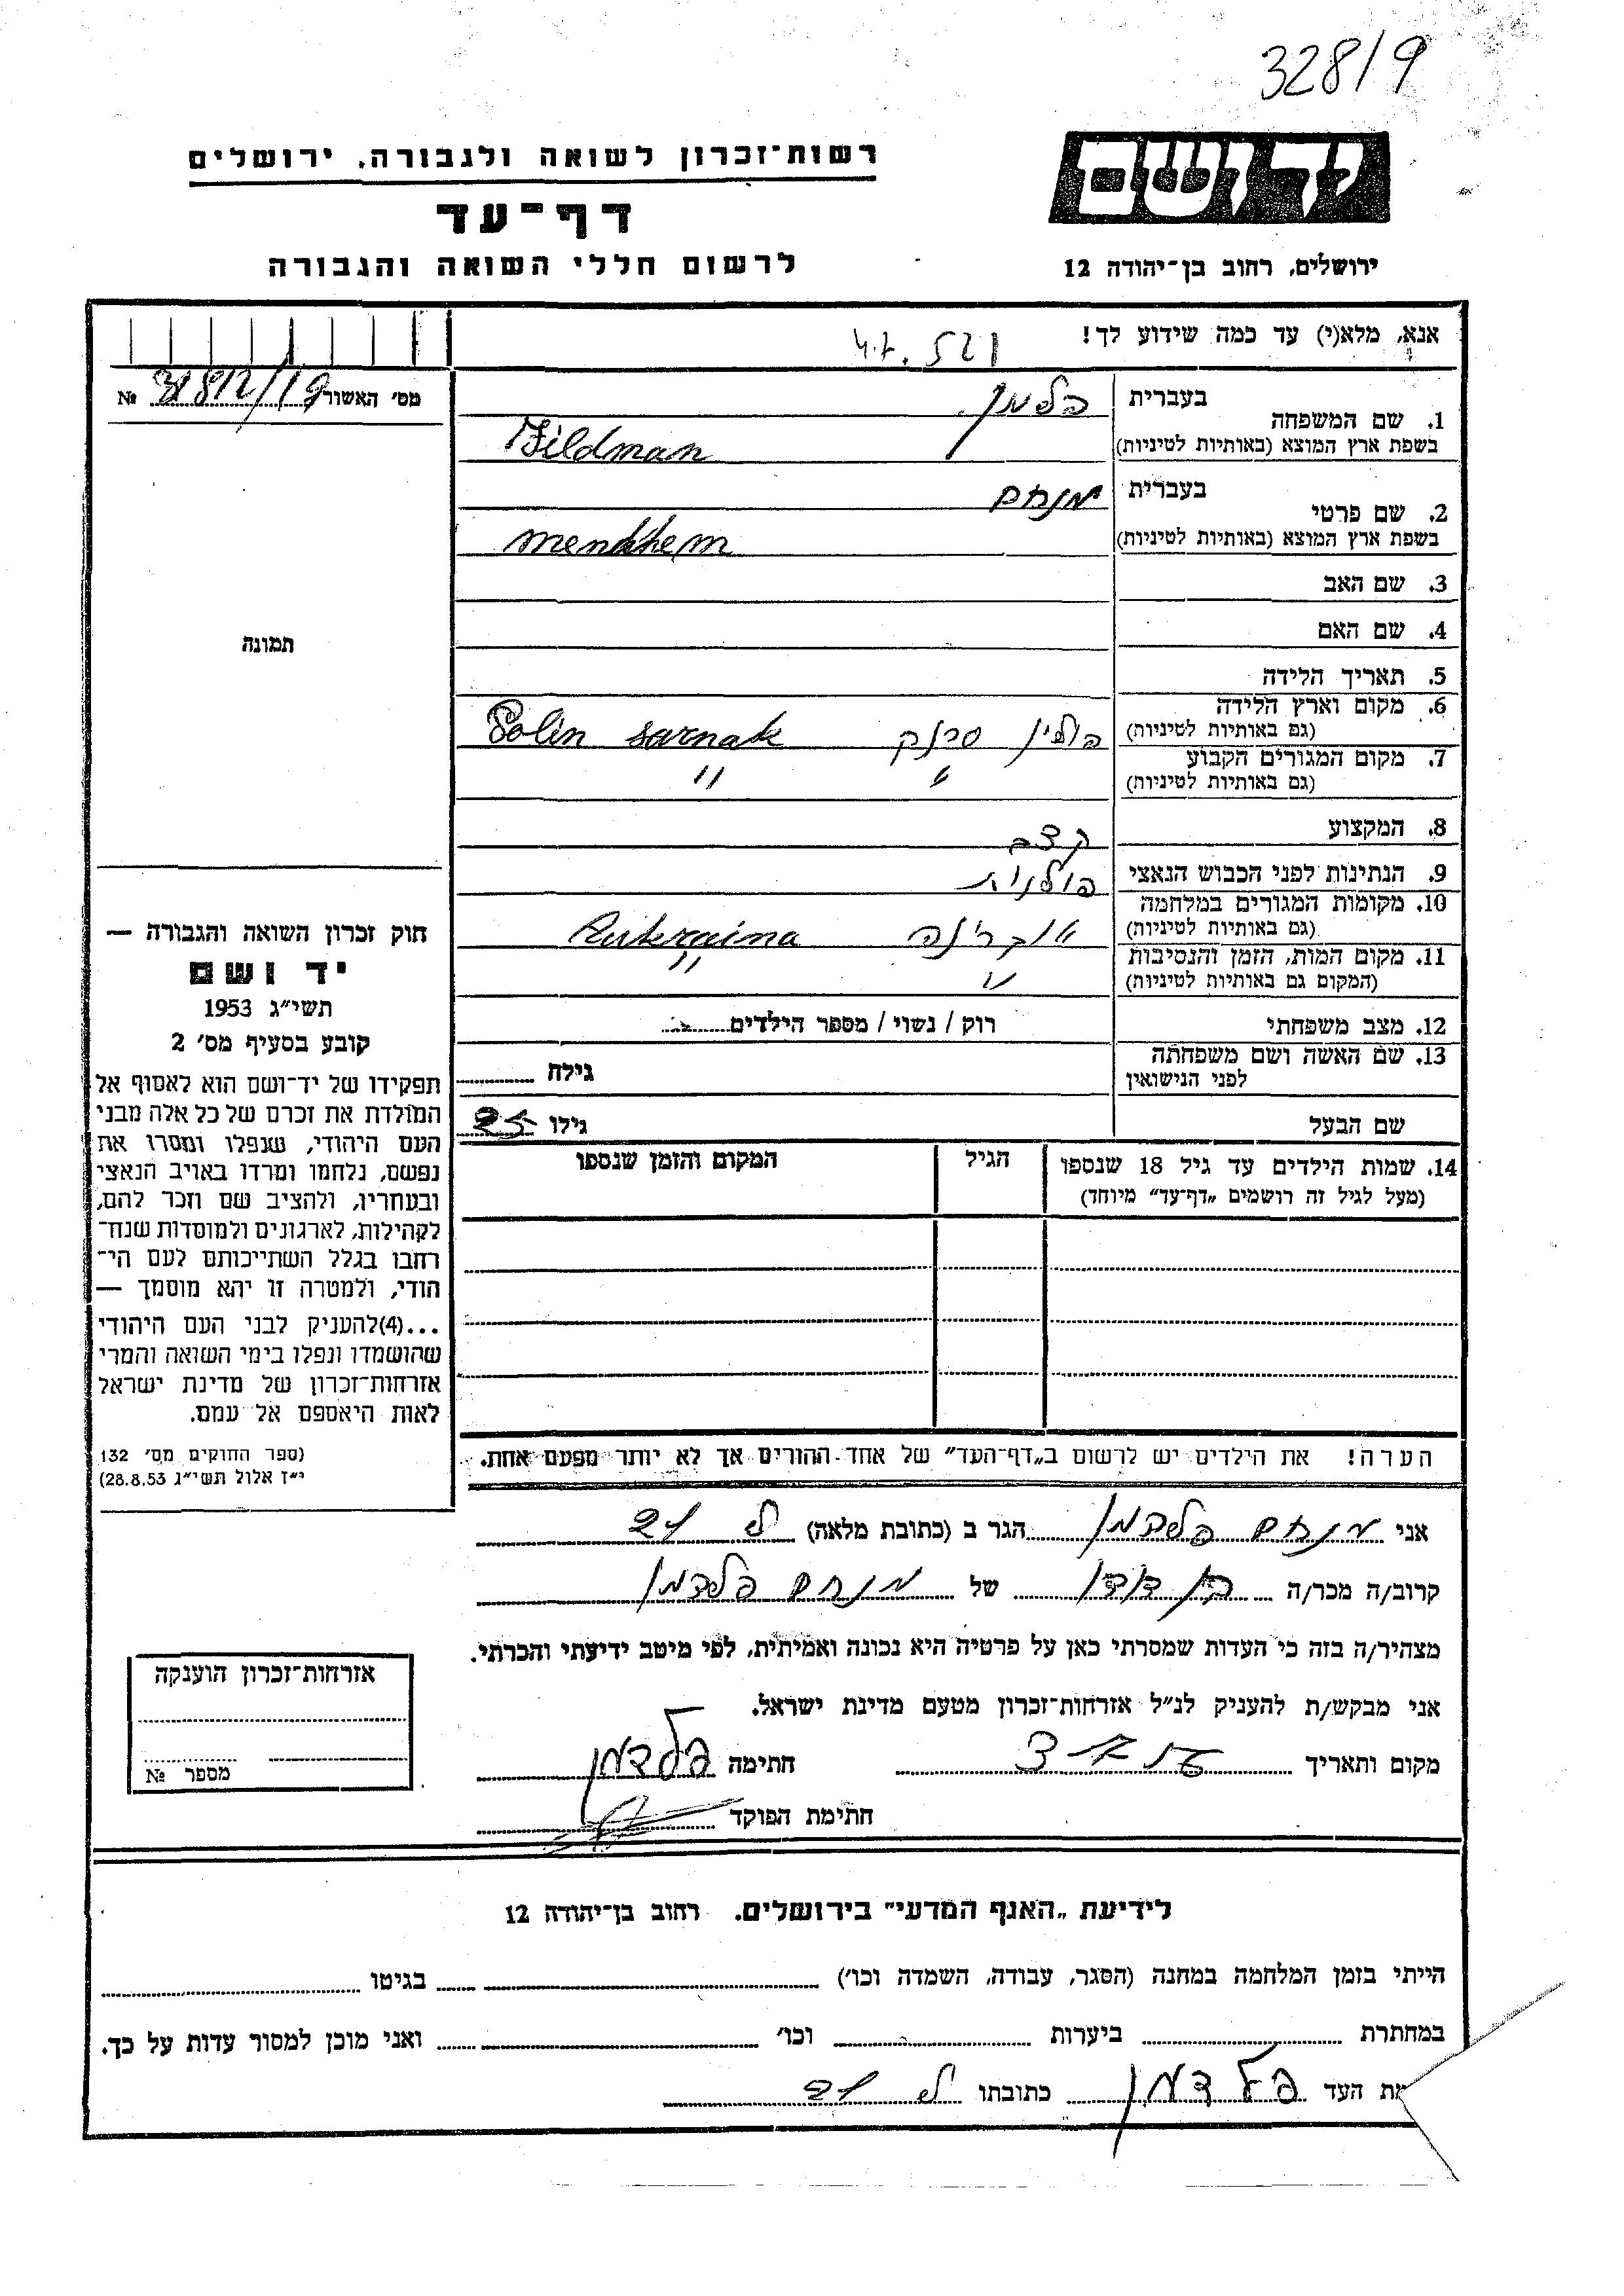 328/9
רשות־זכרון לשואה ולגבורה, ירושלים
יד ושם
דף־עד
לרשום חללי השואה והגבורה
ירושלים, רחוב בן־יהודה 12
אנא, מלא(י) עד כמה שידוע לך!
מס' האשור
№
1. שם המשפחה
בעברית
בשפת ארץ המוצא (באותיות לטיניות)
Fildman
2. שם פרטי
בעברית מנחם
בשפת ארץ המוצא (באותיות לטיניות)
3. שם האב
4. שם האם
תמונה
5. תאריך הלידה
6. מקום וארץ הלידה
(גם באותיות לטיניות) פולין סרנק Polin sarnak
7. מקום המגורים הקבוע " "
(גם באותיות לטיניות)
8. המקצוע קצב
9. הנתינות לפני הכבוש הנאצי פולנית
10. מקומות המגורים במלחמה
(גם באותיות לטיניות) אוקרינה
11. מקום המות, הזמן והנסיבות " "
(המקום גם באותיות לטיניות)
12. מצב משפחתי רוק / נשוי / מספר הילדים
13. שם האשה ושם משפחתה
לפני הנישואין
גילה
שם הבעל גילו 25
14. שמות הילדים עד גיל 18 שנספו הגיל המקום והזמן שנספו
(מעל לגיל זה רושמים „דף־עד" מיוחד)
חוק זכרון השואה והגבורה —
יד ושם
תשי"ג 1953
קובע בסעיף מס' 2
תפקידו של יד־ושם הוא לאסוף אל
המולדת את זכרם של כל אלה מבני
העם היהודי, שנפלו ומסרו את
נפשם, נלחמו ומרדו באויב הנאצי
ובעוזריו, ולהציב שם וזכר להם,
לקהילות, לארגונים ולמוסדות שנח־
רחבו בגלל השתייכותם לעם הי־
הודי, ולמטרה זו יהא מוסמך —
...(4)להעניק לבני העם היהודי
שהושמדו ונפלו בימי השואה והמרי
אזרחות־זכרון של מדינת ישראל
לאות היאספם אל עמם.
(ספר החוקים מס' 132
י"ז אלול תשי"ג 28.8.53)
הערה! את הילדים יש לרשום ב„דף־העד" של אחד ההורים אך לא יותר מפעם אחת.
אני מנחם פלדמן הגר ב (כתובת מלאה)
קרוב/ה מכר/ה בן דודו של מנחם פלדמן
מצהיר/ה בזה כי העדות שמסרתי כאן על פרטיה היא נכונה ואמיתית, לפי מיטב ידיעתי והכרתי.
אני מבקש/ת להעניק לנ"ל אזרחות־זכרון מטעם מדינת ישראל.
מקום ותאריך חתימה פלדמן
חתימת הפוקד
אזרחות־זכרון הוענקה
מספר №
לידיעת „האנף המדעי" בירושלים. רחוב בן־יהודה 12
הייתי בזמן המלחמה במחנה (הסגר, עבודה, השמדה וכו') בגיטו
במחתרת ביערות וכו' ואני מוכן למסור עדות על כך.
העד פלדמן כתובתו